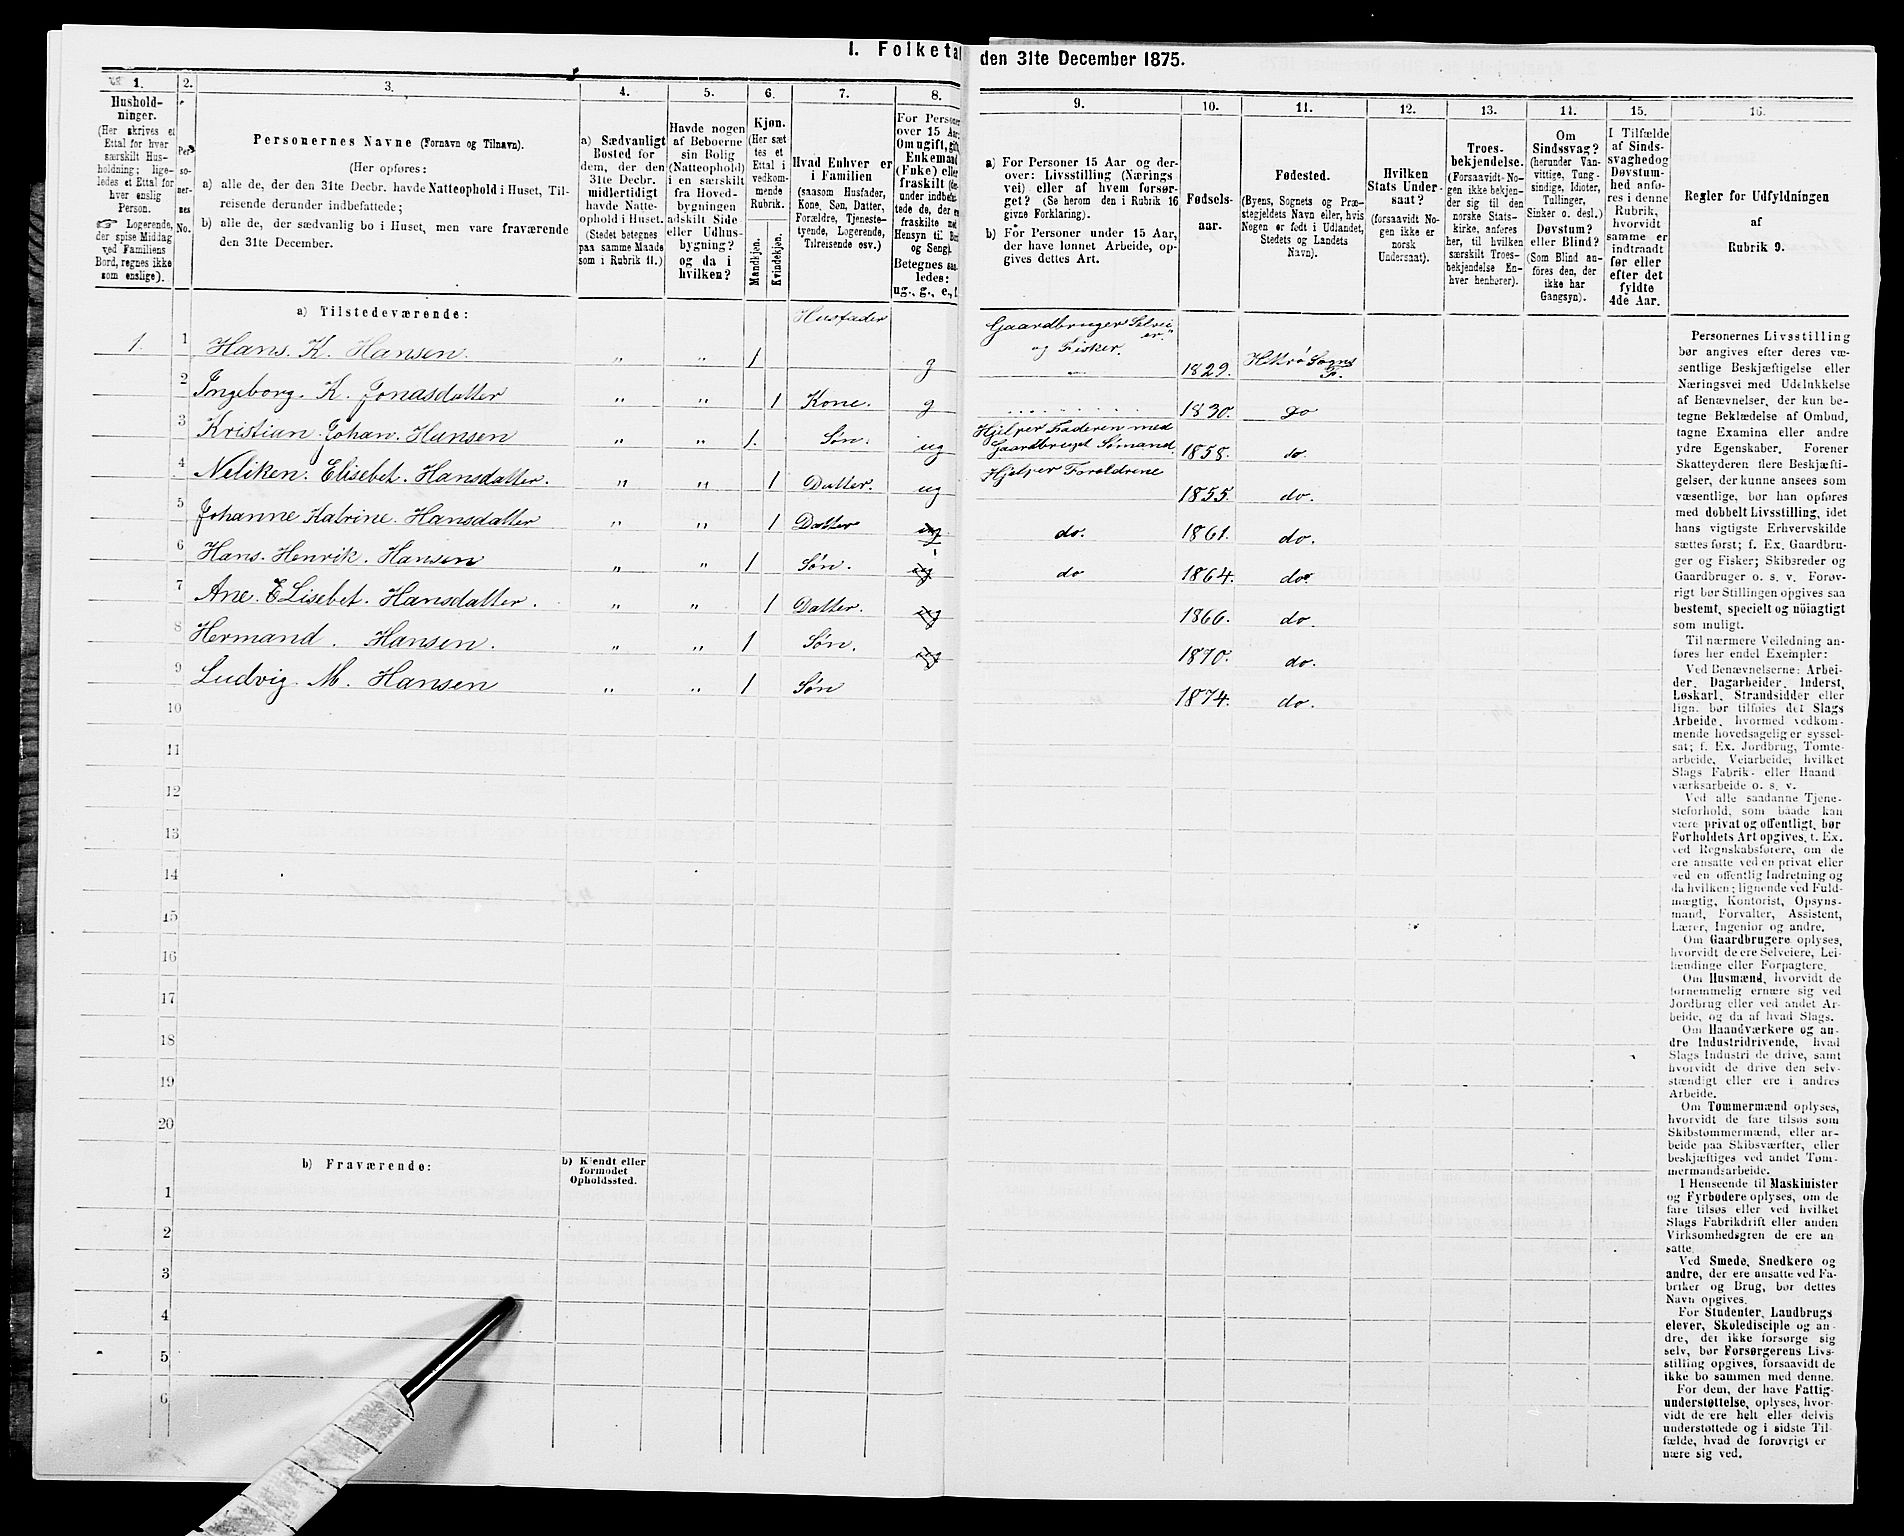 I. Folketal
den 31te December 1875.
1. 2. 3. 4. 5. 6. 7. 8.
Hushold-
ninger.
(Her skrives et
Ettal for hver
særskilt Hus-
holdning; lige-
ledes et Ettal for
hver enslig
Person.
☞ Logerende,
der spise Middag
ved Familiens
Bord, regnes ikke
som enslige).
Per-
so-
ner-
nes
No.
Personernes Navne (Fornavn og Tilnavn).
(Her opføres:
a) alle de, der den 31te Decbr. havde Natteophold i Huset, Til-
reisende derunder indbefattede;
b) alle de, der sædvanlig bo i Huset, men vare fraværende
den 31te December.
a) Sædvanligt
Bosted for
dem, der den
31te Decbr.
midlertidigt
havde Natte-
ophold i Huset.
(Stedet betegnes
paa samme Maade
som i Rubrik 11.)
Havde nogen
af Beboerne
sin Bolig
(Natteophold)
i en særskilt
fra Hoved-
bygningen
adskilt Side
eller Udhus-
bygning?
og da i
hvilken?
Kjøn.
(Her sæt-
tes et
Ettal i
vedkom-
mende
Rubrik.)
Mandkjøn.
Kvindekjøn.
Hvad Enhver er
i Familien
(saasom Husfader,
Kone, Søn, Datter,
Forældre, Tjeneste-
tyende, Logerende,
Tilreisende osv.)
For Personer
over 15 Aar:
Om ugift, gift,
Enkemand
(Enke) eller
fraskilt
Betegnes saa-
ledes:
ug., g., e., f.
9. 10. 11. 12. 13. 14. 15. 16.
a) For Personer 15 Aar og der-
over: Livsstilling (Nærings
vei) eller af hvem forsør-
get? (Se herom den i Rubrik 16
givne Forklaring).
b) For Personer under 15 Aar,
der have lønnet Arbeide, op-
gives dettes Art.
Fødsels-
aar.
Fødested.
(Byens, Sognets og Præ-
stegjeldets Navn eller, hvis
Nogen er født i Udlandet,
Stedets og Landets
Navn).
Hvilken
Stats Under-
saat?
(forsaavidt No-
gen ikke er
norsk
Undersaat).
Troes-
bekjendelse.
(Forsaavidt No-
gen ikke bekjen-
der sig til den
norske Stats-
kirke, anføres
her, til hvilken
særskilt Troes-
bekjendelse En-
hver henhører).
Om
Sindssvag?
(herunder Van-
vittige, Tung-
sindige, Idioter,
Tullinger,
Sinker o. desl.)
Døvstum?
eller Blind?
(Som Blind an-
føres den, der
ikke har
Gangsyn).
I Tilfælde
af Sinds-
svaghedog
Døvstum-
hed anfø-
res i denne
Rubrik,
hvorvidt
samme er
indtraadt
før eller
efter det
fyldte
4de Aar.
Regler for Udfyldningen
af
Rubrik 9.
a) Tilstedeværende:
1. 1 Hans. K. Hansen. „ „ 1 Husfader g Gaardbruger Selvei er." og Fisker. 1829. Hitterø Sogns P.
2 Ingeborg. K. Jonasdatter „ „ 1 Kone. g 1830. do
3 Kristian. Johan. Hansen „ „ 1. Søn. ug Hjelper Faderen med Gaardbruget Sømand. 1858. do.
4 Neliken. Elisebet. Hansdatter. „ „ 1 Datter. ug Hjelper Foreldrene 1855. do.
5 Johanne Katrine. Hansdatter „ „ 1 Datter ug do. 1861. do.
6 Hans. Henrik. Hansen „ „ 1 Søn. ug do 1864. do.
7 Ane. Elisebet. Hansdatter. „ „ 1 Datter. ug 1866. do.
8 Hermand. Hansen. „ „ 1 Søn. ug 1870. do.
9 Ludvig. M. Hansen „ „ 1 Søn 1874. do.
10
11
12
13
14
15
16
17
18
19
20
b) Fraværende:
b) Kjendt eller
formodet
Opholdssted.
1
2
3
4
5
6
Personernes Livsstilling
bør angives efter deres væ-
sentlige Beskjæftigelse eller
Næringsvei med Udelukkelse
af Benævnelser, der kun be-
tegne Beklædelse af Ombud,
tagne Examina eller andre
ydre Egenskaber. Forener
Skatteyderen flere Beskjæfti-
gelser, der kunne ansees som
væsentlige, bør han opføres
med dobbelt Livsstilling, idet
hans vigtigste Erhvervskilde
sættes først; f. Ex. Gaardbru-
ger og Fisker; Skibsreder og
Gaardbruger o. s. v. Forøv-
rigt bør Stillingen opgives saa
bestemt, specielt og nöiagtigt
som muligt.
Til nærmere Veiledning an-
føres her endel Exempler:
Ved Benævnelserne: Arbei-
der, Dagarbeider, Inderst,
Løskarl, Strandsidder eller
lign. bør tilføies det Slags
Arbeide, hvormed vedkom-
mende hovedsagelig er syssel-
sat; f. Ex. Jordbrug, Tomte-
arbeide, Veiarbeide, hvilket
Slags Fabrik- eller Haand
værksarbeide o. s. v.
Ved alle saadanne Tjene-
steforhold, som baade kan
være privat og offentligt, bør
Forholdets Art opgives, t. Ex.
ved Regnskabsførere, om de
ere ansatte ved en privat eller
ved en offentlig Indretning og
da hvilken; lignende ved Fuld-
mægtig, Kontorist, Opsyns-
mand, Forvalter, Assistent,
Lærer, Ingeniør og andre.
Om Gaardbrugere oplyses,
hvorvidt de ere Selveiere, Lei-
lændinge eller Forpagtere.
Om Husmænd, hvorvidt de
fornemmelig ernære sig ved
Jordbrug eller ved andet Ar-
beide, og da af hvad Slags.
Om Haandværkere og an-
dre Industridrivende, hvad
Slags Industri de drive, samt
hvorvidt de drive den selv-
stændigt eller ere i andres
Arbeide.
Om Tømmermænd oplyses,
hvorvidt de fare tilsøs som
Skibstømmermænd, eller ar-
beide paa Skibsværfter, eller
beskjæftiges ved andet Tøm-
mermandsarbeide.
I Henseende til Maskinister
og Fyrbødere oplyses, om de
fare tilsøs eller ved hvilket
Slags Fabrikdrift eller anden
Virksomhedsgren de ere an
satte.
Ved Smede, Snedkere og
andre, der ere ansatte ved Fa-
briker og Brug, bør dettes
Navn opgives.
For Studenter, Landbrugs
elever, Skoledisciple og an-
dre, det ikke forsørge sig
selv, bør Forsørgerens Livs-
stilling opgives, forsaavidt de
ikke bo sammen med denne.
For dem, der have Fattig-
understøttelse, oplyses, hvor-
vidt de ere helt eller delvis
understøttede og i sidste Til-
fælde, hvad de forøvrigt er
nære sig ved.